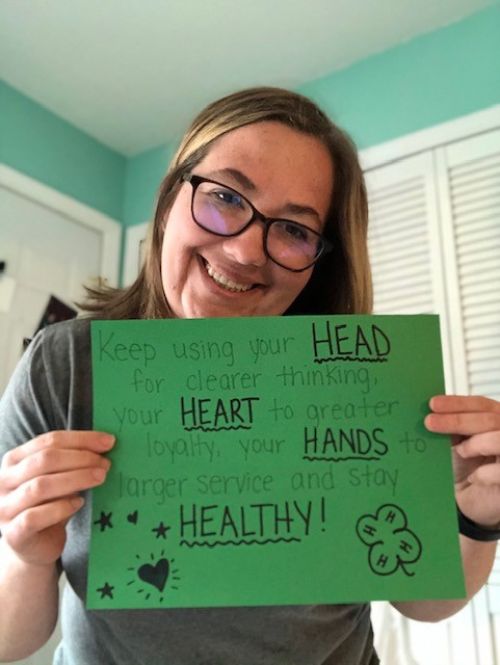 Keep using your HEAD
for clearer thinking,
your HEART to greater
loyalty, your HANDS to
larger service and stay
HEALTHY!
H H
H H